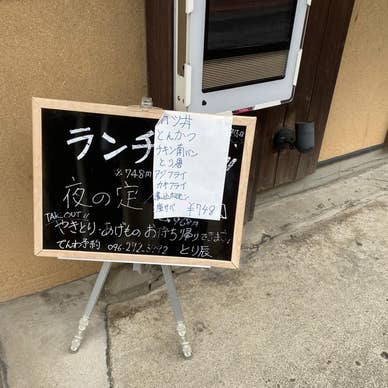 ランチ
748円
カツ丼
とんかつ
チキン南バン
とり唐
アジフライ
カキフライ
塩サバ
¥748
夜の定
TAKE OUT!!
やきとり・あげもの お持ち帰りできます!
でんわ予約
とり辰